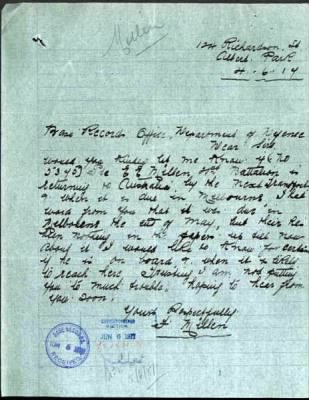 Millen
124 Richardson St
Albert Park
4.6.17
Base Records Office, Department of Defence
Dear Sir
would you kindly let me know if No
Pte E G Millen, Battalion is
returning to Australia, by the next Transport
& when it is due in Melbourne, I had
word from you that it was due in
Melbourne the end of May, but their has
been nothing in the papers as yet now
about it I would like to know for certain
if he is on board & when it is likely
to reach here Trusting I am not putting
you to much trouble, hoping to hear from
you soon.
Yours Respectfully
Millen
BASE RECORDS
RECEIVED